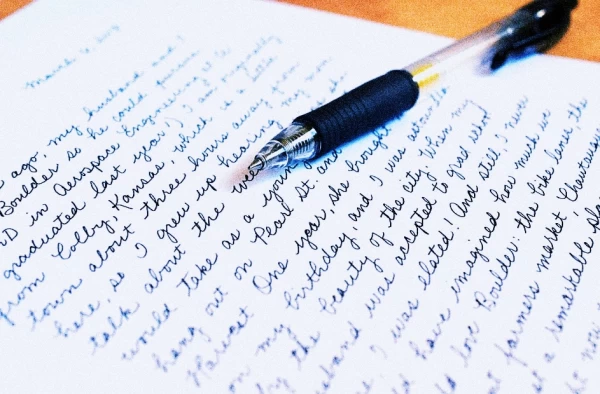 March
ago, my husband and I
Boulder so he could pursue
D in Aerospace Engineering
graduated last year!) I am originally
from Colby, Kansas, which is a little
town about three hours away from
here, so I grew up hearing my mom
talk about the
would take as a young
hang out on Pearl St. and
Harvest One year, she brought
on my birthday, and I was
by the beauty of the city. When my
sband was accepted to grad school
I was elated! And still, I never
ld have imagined how much we
ld love Boulder: the bike lanes, the
farmers market, Chautauqua
a remarkable pla